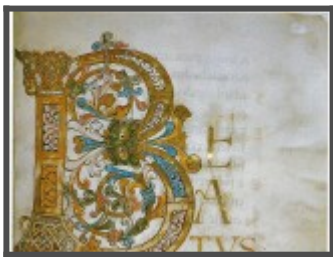 B
E
A
TVS